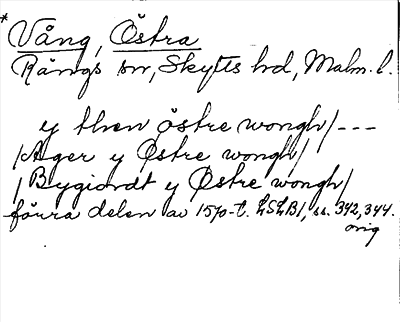 * Vång, Östra
Rängs sn, Skytts hd, Malm. l.
y then östre wongh/---
/Ager y Østre wongh/
/Bygiordt y Østre wongh/
förra delen av 1570-t. LSLB1, ss. 342, 344.
orig